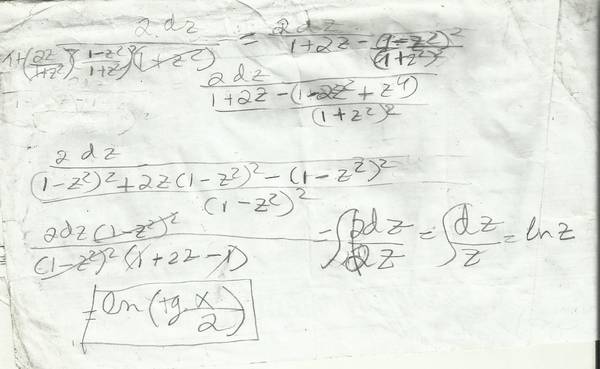 2 dz / (1+(2z/1+z²) - (1-z²/1+z²)(1+z²)) = 2dz / (1+2z - (1-z²)²/(1+z²)²)
2dz / ((1+2z-(1-2z²+z⁴)) / (1+z²)²)
2dz / (((1-z²)²+2z(1-z²)²-(1-z²)²) / (1-z²)²)
2dz(1-z²)² / ((1-z²)²(1+2z-1)) = ∫ 2dz/2z = ∫ dz/z = ln z
= ln(tg x/2)